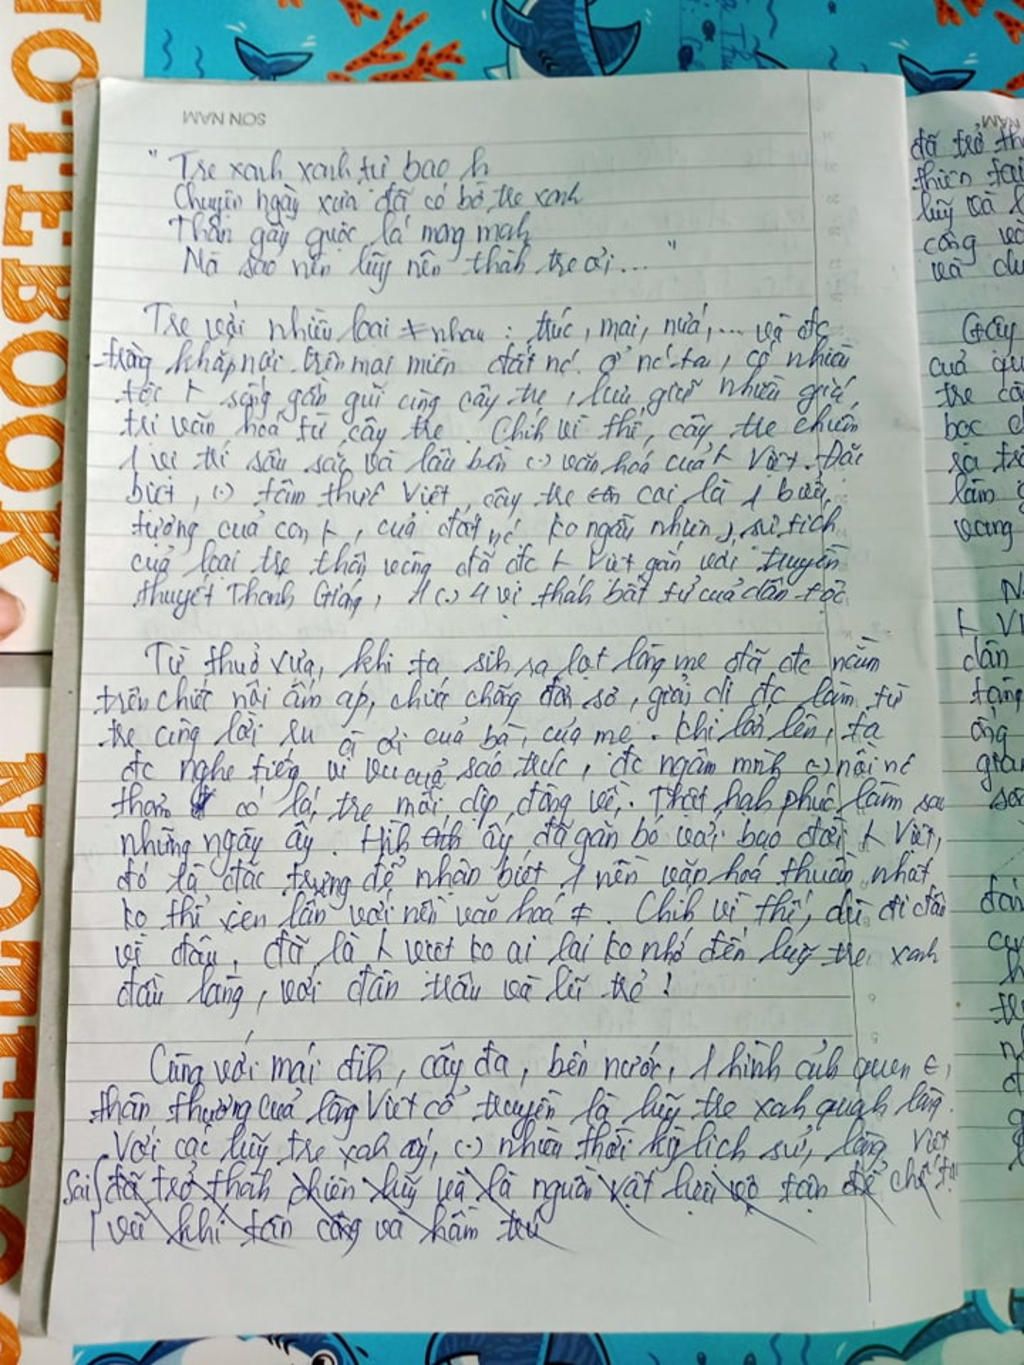 SON NAM
" Tre xanh xanh tự bao h
Chuyện ngày xưa đã có bờ tre xanh
Thân gầy guộc lá mong manh
Mà sao nên lũy nên thành tre ơi... "
Tre với nhiều loại ≠ nhau : trúc, mai, nứa,... và đc
trồng khắp nơi trên mọi miền đất nc. Ở nc ta, có nhiều
tộc sống gần gũi cùng cây tre, lưu giữ nhiều giá
trị văn hoá từ cây tre. Chính vì thế, cây tre chiếm
1 vị trí sâu sắc và lâu bền (.) văn hoá của Việt. Đặc
biệt, (.) tâm thức Việt, cây tre coi là 1 biểu
tượng của con, của đất nc. Ko ngẫu nhiên, sự tích
của loại tre thân vàng đã đc Việt gắn với truyền
thuyết Thánh Gióng, 1 (.) 4 vị thánh bất tử của dân tộc
Từ thuở xưa, khi ta sinh ra lọt lòng mẹ đã đc nằm
trên chiếc nôi ấm áp, chiếc chõng đơn sơ, giản dị đc làm từ
tre cùng lời ru ầ ơi của bà, của mẹ. Khi lớn lên, ta
đc nghe tiếng vi vu của sáo trúc, đc ngâm mình (.) nồi nc
thơm có lá tre mỗi dịp đông về. Thật hạnh phúc làm sao
những ngày ấy. Hình ảnh ấy đã gắn bó với bao đời Việt,
đó là đặc trưng để nhận biết 1 nền văn hoá thuần nhất
ko thể xen lẫn với nền văn hoá ≠. Chính vì thế, dù đi đâu
về đâu, đã là việt ko ai lại ko nhớ đến lũy tre xanh
đầu làng, với đàn trâu và lũ trẻ !
Cùng với mái đình, cây đa, bến nước, 1 hình ảnh quen
thân thương của làng Việt cổ truyền là lũy tre xanh quanh làng.
Với các lũy tre xanh ấy, (.) nhiều thời kỳ lịch sử, làng Việt
Sai đã trở thành chiến lũy và là nguồn vật liệu vô tận để chế tạo
vũ khí tấn công và hầm trú
NOTEBOOK
đã trở th
lũy và l
công và
và dụ
Gậy
của qu
tre cò
bọc
làm
vang
dân
tặng
ông